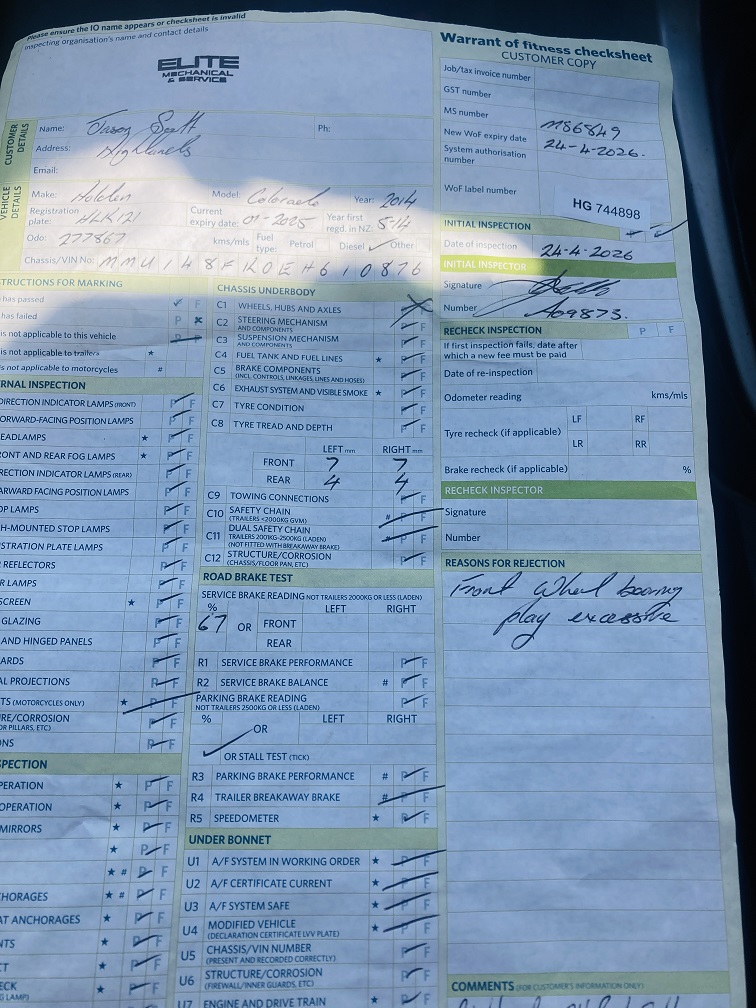 Please ensure the IO name appears or checksheet is invalid
Inspecting organisation's name and contact details
ELITE
MECHANICAL
& SERVICE
Warrant of fitness checksheet
CUSTOMER COPY
Job/tax invoice number
GST number
MS number M86849
New WoF expiry date 24-4-2026.
System authorisation number
WoF label number HG 744898
CUSTOMER DETAILS
Name: Jason Scott Ph:
Address: Highlands
Email:
VEHICLE DETAILS
Make: Holden Model: Colorado Year: 2014
Registration plate: HLK121 Current expiry date: 01-2025 Year first regd. in NZ: 5-14
Odo: 277867 kms/mls Fuel type: Petrol Diesel ✓ Other
Chassis/VIN No: MMU148FK0EH610876
INITIAL INSPECTION
Date of inspection 24-4-2026
INITIAL INSPECTOR
Signature
Number A09873.
RECHECK INSPECTION P F
If first inspection fails, date after which a new fee must be paid
Date of re-inspection
Odometer reading kms/mls
Tyre recheck (if applicable) LF RF
LR RR
Brake recheck (if applicable) %
RECHECK INSPECTOR
Signature
Number
REASONS FOR REJECTION
Front Wheel bearing
play excessive
COMMENTS (FOR CUSTOMER'S INFORMATION ONLY)
STRUCTIONS FOR MARKING
has passed ✓ F
has failed P ✗
is not applicable to this vehicle
is not applicable to trailers ★
s not applicable to motorcycles #
RNAL INSPECTION
DIRECTION INDICATOR LAMPS (FRONT) P F
ORWARD-FACING POSITION LAMPS P F
EADLAMPS ★ P F
ONT AND REAR FOG LAMPS ★ P F
RECTION INDICATOR LAMPS (REAR) P F
ARWARD FACING POSITION LAMPS P F
OP LAMPS P F
H-MOUNTED STOP LAMPS P F
STRATION PLATE LAMPS P F
REFLECTORS P F
R LAMPS P F
SCREEN ★ P F
GLAZING P F
AND HINGED PANELS P F
ARDS P F
AL PROJECTIONS P F
TS (MOTORCYCLES ONLY) ★ P F
RE/CORROSION P F
OR PILLARS, ETC)
ONS P F
SPECTION
PERATION ★ P F
OPERATION ★ P F
MIRRORS ★ P F
★ P F
★ # P F
HORAGES ★ # P F
AT ANCHORAGES ★ P F
NTS ★ P F
T ★ P F
ECK ★ P F
G LAMP)
CHASSIS UNDERBODY
C1 WHEELS, HUBS AND AXLES
C2 STEERING MECHANISM P F
AND COMPONENTS
C3 SUSPENSION MECHANISM P F
AND COMPONENTS
C4 FUEL TANK AND FUEL LINES ★ P F
C5 BRAKE COMPONENTS P F
(INCL. CONTROLS, LINKAGES, LINES AND HOSES)
C6 EXHAUST SYSTEM AND VISIBLE SMOKE ★ P F
C7 TYRE CONDITION P F
C8 TYRE TREAD AND DEPTH P F
LEFT mm RIGHT mm
FRONT 7 7
REAR 4 4
C9 TOWING CONNECTIONS P F
C10 SAFETY CHAIN #
(TRAILERS <2000KG GVM)
C11 DUAL SAFETY CHAIN #
TRAILERS 2001KG-2500KG (LADEN)
(NOT FITTED WITH BREAKAWAY BRAKE)
C12 STRUCTURE/CORROSION P F
(CHASSIS/FLOOR PAN, ETC)
ROAD BRAKE TEST
SERVICE BRAKE READING NOT TRAILERS 2000KG OR LESS (LADEN)
% LEFT RIGHT
67 OR FRONT
REAR
R1 SERVICE BRAKE PERFORMANCE P F
R2 SERVICE BRAKE BALANCE # P F
PARKING BRAKE READING P F
NOT TRAILERS 2500KG OR LESS (LADEN)
% LEFT RIGHT
OR
✓ OR STALL TEST (TICK)
R3 PARKING BRAKE PERFORMANCE # P F
R4 TRAILER BREAKAWAY BRAKE # P F
R5 SPEEDOMETER ★ P F
UNDER BONNET
U1 A/F SYSTEM IN WORKING ORDER ★ P F
U2 A/F CERTIFICATE CURRENT ★ P F
U3 A/F SYSTEM SAFE ★ P F
U4 MODIFIED VEHICLE ★ P F
(DECLARATION CERTIFICATE LVV PLATE)
U5 CHASSIS/VIN NUMBER P F
(PRESENT AND RECORDED CORRECTLY)
U6 STRUCTURE/CORROSION P F
(FIREWALL/INNER GUARDS, ETC)
U7 ENGINE AND DRIVE TRAIN P F